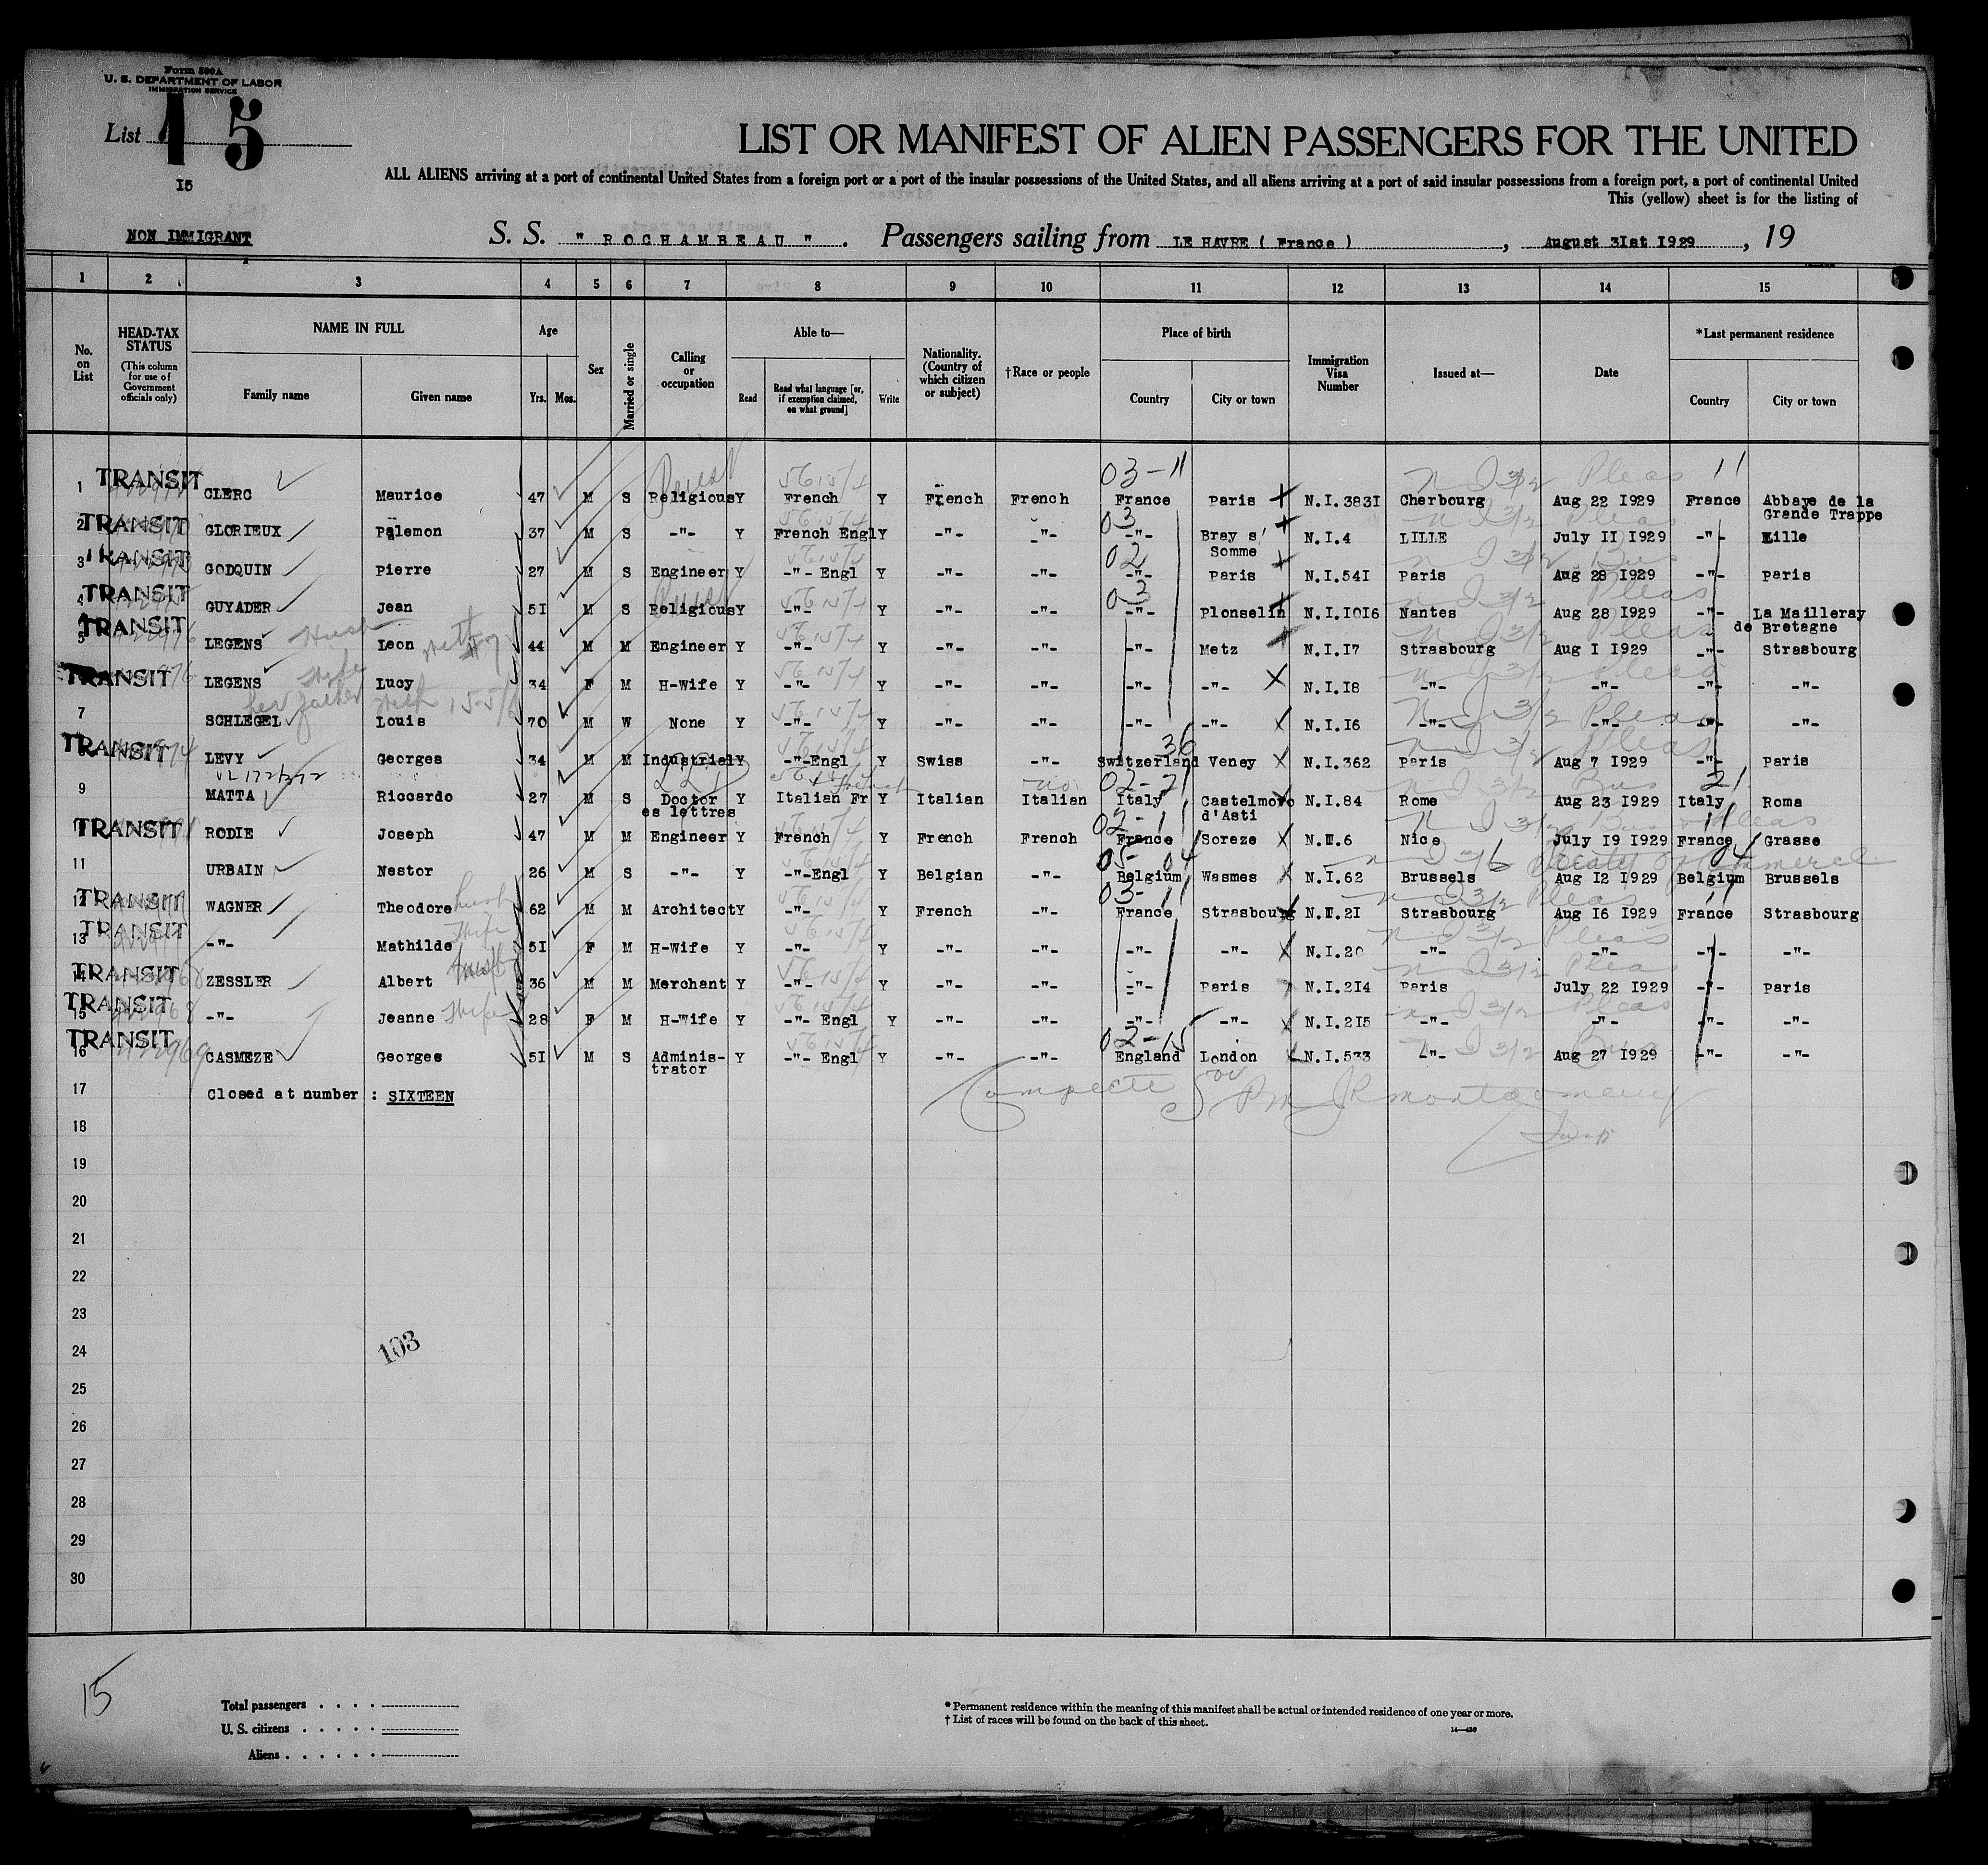 Form 500A
U. S. DEPARTMENT OF LABOR
IMMIGRATION SERVICE
List 15
15
LIST OR MANIFEST OF ALIEN PASSENGERS FOR THE UNITED
ALL ALIENS arriving at a port of continental United States from a foreign port or a port of the insular possessions of the United States, and all aliens arriving at a port of said insular possessions from a foreign port, a port of continental United
This (yellow) sheet is for the listing of
NON IMMIGRANT S. S. " ROCHAMBEAU ". Passengers sailing from LE HAVRE ( France ), August 3Ist I929, 19
1 2 3 4 5 6 7 8 9 10 11 12 13 14 15
No. on List HEAD-TAX STATUS (This column for use of Government officials only) NAME IN FULL Family name Given name Age Yrs. Mos. Sex Married or single Calling or occupation Able to— Read Read what language [or, if exemption claimed, on what ground] Write Nationality. (Country of which citizen or subject) †Race or people Place of birth Country City or town Immigration Visa Number Issued at— Date *Last permanent residence Country City or town
03-11 11
1 TRANSIT CLERC Maurice 47 M S Religious Y French Y French French France Paris N.I.383I Cherbourg Aug 22 I929 France Abbaye de la Grande Trappe
2 TRANSIT GLORIEUX Palemon 37 M S -"- Y French Engl Y -"- -"- 03 -"- Bray s/ Somme N.I.4 LILLE July II I929 -"- Lille
3 TRANSIT GODQUIN Pierre 27 M S Engineer Y -"- Engl Y -"- -"- 02 -"- Paris N.I.54I Paris Aug 28 I929 -"- Paris
4 TRANSIT GUYADER Jean 5I M S Religious Y -"- Y -"- -"- 03 -"- Plonselin N.I.I0I6 Nantes Aug 28 I929 -"- La Mailleray de Bretagne
5 TRANSIT LEGENS Leon 44 M M Engineer Y -"- Y -"- -"- -"- Metz N.I.I7 Strasbourg Aug I I929 -"- Strasbourg
TRANSIT LEGENS Wife Lucy 34 F M H-Wife Y -"- Y -"- -"- -"- -"- N.I.I8 -"- -"- -"- -"-
her father
7 SCHLEGEL Louis 70 M W None Y -"- Y -"- -"- -"- -"- N.I.I6 -"- -"- -"- -"-
36
TRANSIT LEVY Georges 34 M M Industrial Y -"-Engl Y Swiss -"- Switzerland Vevey N.I.362 Paris Aug 7 I929 -"- Paris
02-21 21
9 MATTA Riccardo 27 M S Doctor es lettres Y Italian Fr Y Italian Italian Italy Castelmovo d'Asti N.I.84 Rome Aug 23 I929 Italy Roma
02-11 11
TRANSIT RODIE Joseph 47 M M Engineer Y French Y French French France Soreze N.I.6 Nice July I9 I929 France Grasse
05-04 04
11 URBAIN Nestor 26 M S -"- Y -"-Engl Y Belgian -"- Belgium Wasmes N.I.62 Brussels Aug I2 I929 Belgium Brussels
03-11 11
12 TRANSIT WAGNER Theodore 62 M M Architect Y -"- Y French -"- France Strasbourg N.I.2I Strasbourg Aug I6 I929 France Strasbourg
13 TRANSIT -"- Mathilde Wife 5I F M H-Wife Y -"- Y -"- -"- -"- -"- N.I.20 -"- -"- -"- -"-
14 TRANSIT ZESSLER Albert 36 M M Merchant Y -"- Y -"- -"- -"- Paris N.I.2I4 Paris July 22 I929 -"- Paris
15 TRANSIT -"- Jeanne Wife 28 F M H-Wife Y -"- Engl Y -"- -"- -"- -"- N.I.2I5 -"- -"- -"- -"-
02-15
16 TRANSIT CASMEZE Georges 5I M S Adminis-trator Y -"- Engl Y -"- -"- England London N.I.533 -"- Aug 27 I929 -"- -"-
17 Closed at number : SIXTEEN
18
19
20
21
22
23
24 103
25
26
27
28
29
30
15
Total passengers
U. S. citizens
Aliens
* Permanent residence within the meaning of this manifest shall be actual or intended residence of one year or more.
† List of races will be found on the back of this sheet.